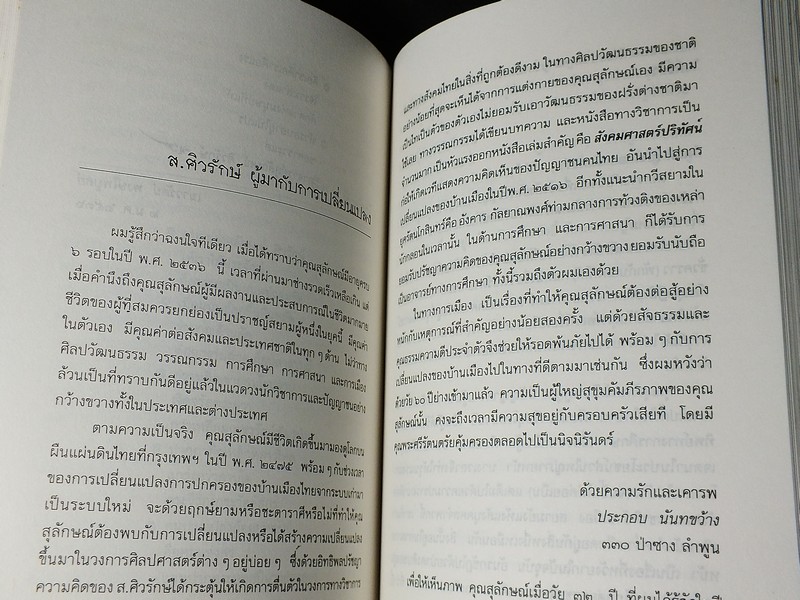 ส.ศิวรักษ์ ผู้มากับการเปลี่ยนแปลง
ผมรู้สึกว่าฉงนใจทีเดียว เมื่อได้ทราบว่าคุณสุลักษณ์มีอายุครบ
๖ รอบในปี พ.ศ. ๒๕๓๖ นี้ เวลาที่ผ่านมาช่างรวดเร็วเหลือเกิน แต่
เมื่อคำนึงถึงคุณสุลักษณ์ผู้มีผลงานและประสบการณ์ในชีวิตมากมาย
ชีวิตของผู้ที่สมควรยกย่องเป็นปราชญ์สยามผู้หนึ่งในยุคนี้ มีคุณค่า
ในตัวเอง มีคุณค่าต่อสังคมและประเทศชาติในทุก ๆ ด้าน ไม่ว่าทาง
ศิลปวัฒนธรรม วรรณกรรม การศึกษา การศาสนา และการเมือง
ล้วนเป็นที่ทราบกันดีอยู่แล้วในแวดวงนักวิชาการและปัญญาชนอย่าง
กว้างขวางทั้งในประเทศและต่างประเทศ
ตามความเป็นจริง คุณสุลักษณ์มีชีวิตเกิดขึ้นมามองดูโลกบน
ผืนแผ่นดินไทยที่กรุงเทพฯ ในปี พ.ศ. ๒๔๗๕ พร้อม ๆ กับช่วงเวลา
ของการเปลี่ยนแปลงการปกครองของบ้านเมืองไทยจากระบบเก่ามา
เป็นระบบใหม่ จะด้วยฤกษ์ยามหรือชะตาราศีหรือไม่ที่ทำให้คุณ
สุลักษณ์ต้องพบกับการเปลี่ยนแปลงหรือได้สร้างความเปลี่ยนแปลง
ขึ้นมาในวงการศิลปศาสตร์ต่าง ๆ อยู่บ่อย ๆ ซึ่งด้วยอิทธิพลปรัชญา
ความคิดของ ส.ศิวรักษ์ได้กระตุ้นให้เกิดการตื่นตัวในวงการทางวิชาการ
และทางสังคมไทยในสิ่งที่ถูกต้องดีงาม ในทางศิลปวัฒนธรรมของชาติ
อย่างน้อยที่สุดจะเห็นได้จากการแต่งกายของคุณสุลักษณ์เอง มีความ
เป็นไทเป็นตัวของตัวเองไม่ยอมรับเอาวัฒนธรรมของฝรั่งต่างชาติมา
ใช้เลย ทางวรรณกรรมได้เขียนบทความ และหนังสือทางวิชาการเป็น
จำนวนมาก เป็นหัวแรงออกหนังสือเล่มสำคัญ คือ สังคมศาสตร์ปริทัศน์
ก่อให้เกิดเวทีแสดงความคิดเห็นของปัญญาชนคนไทย อันนำไปสู่การ
เปลี่ยนแปลงของบ้านเมืองในปี พ.ศ. ๒๕๑๖ อีกทั้งแนะนำกวีสยามใน
ยุครัตนโกสินทร์คือ อังคาร กัลยาณพงศ์ท่ามกลางการท้วงติงของเหล่า
นักกลอนในเวลานั้น ในด้านการศึกษา และการศาสนา ก็ได้รับการ
ยอมรับปรัชญาความคิดของคุณสุลักษณ์อย่างกว้างขวาง ยอมรับนับถือ
เป็นอาจารย์ทางการศึกษา ทั้งนี้รวมถึงตัวผมเองด้วย
ในทางการเมือง เป็นเรื่องที่ทำให้คุณสุลักษณ์ต้องต่อสู้อย่าง
หนักกับเหตุการณ์ที่สำคัญอย่างน้อยสองครั้ง แต่ด้วยสัจธรรมและ
คุณธรรมความดีประจำตัวจึงช่วยให้รอดพ้นภัยไปได้ พร้อม ๆ กับการ
เปลี่ยนแปลงของบ้านเมืองไปในทางที่ดีตามมาเช่นกัน ซึ่งผมหวังว่า
ด้วยวัย ๖๐ ปีย่างเข้ามาแล้ว ความเป็นผู้ใหญ่สุขุมคัมภีรภาพของคุณ
สุลักษณ์นั้น คงจะถึงเวลามีความสุขอยู่กับครอบครัวเสียที โดยมี
คุณพระศรีรัตนตรัยคุ้มครองตลอดไปเป็นนิจนิรันดร์
ด้วยความรักและเคารพ
ประกอบ นันทขว้าง
๓๓๐ ป่าซาง ลำพูน
เพื่อให้เห็นภาพ คุณสุลักษณ์เมื่อวัย ๓๒ ปี ที่ผมได้รู้จัก